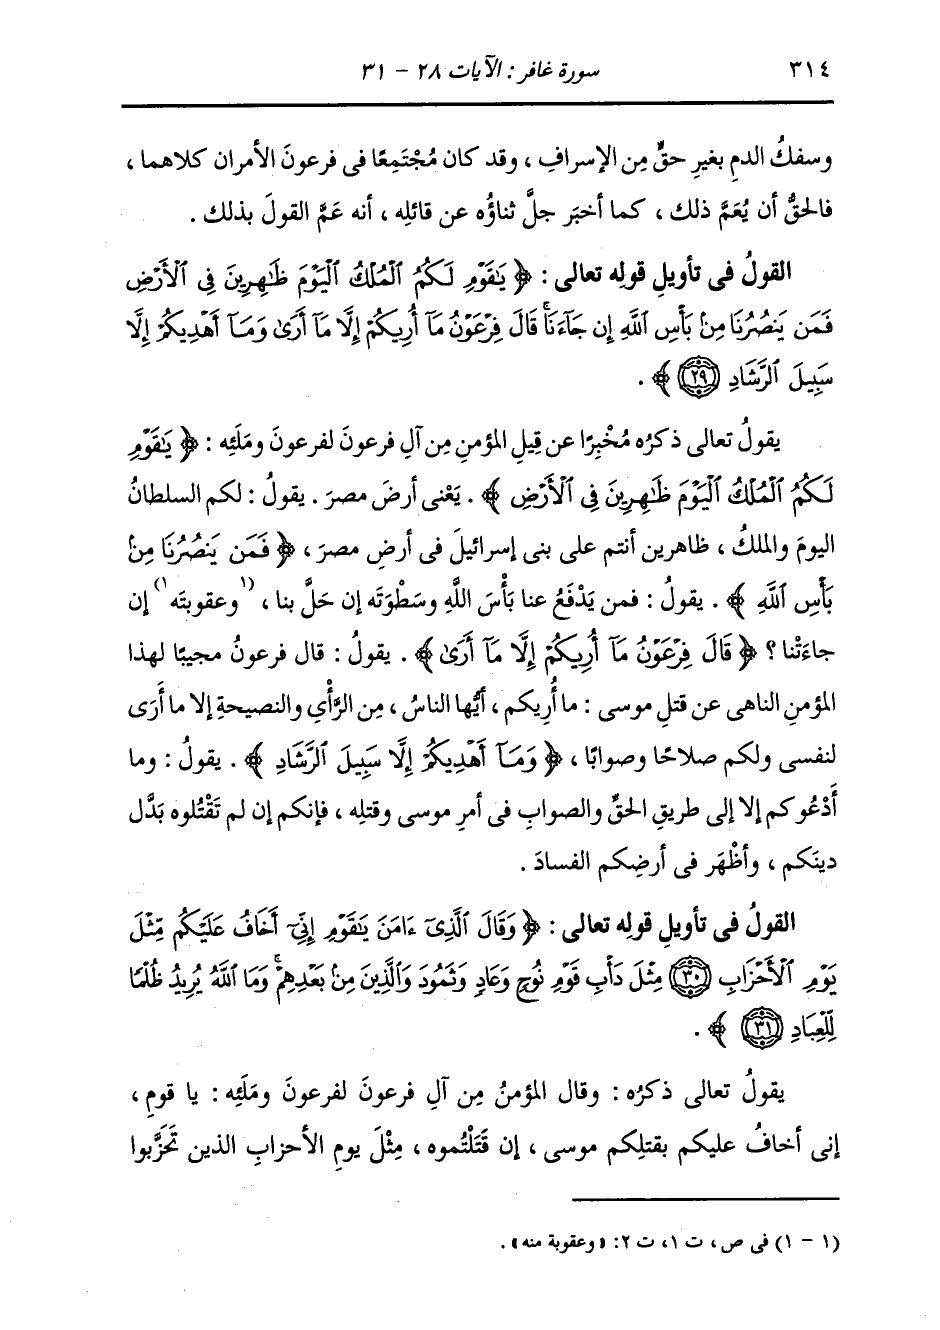 ٣١٤ سورة غافر : الآيات ٢٨ - ٣١
وسفكُ الدمِ بغيرِ حقٍّ مِن الإسرافِ ، وقد كان مُجْتَمِعًا فى فرعونَ الأمران كلاهما ،
فالحقُّ أن يُعَمَّ ذلك ، كما أخبَر جلَّ ثناؤُه عن قائلِه ، أنه عَمَّ القولَ بذلك .
القولُ فى تأويلِ قولِه تعالى : ﴿ يَٰقَوْمِ لَكُمُ ٱلْمُلْكُ ٱلْيَوْمَ ظَٰهِرِينَ فِى ٱلْأَرْضِ
فَمَن يَنصُرُنَا مِنۢ بَأْسِ ٱللَّهِ إِن جَآءَنَاۚ قَالَ فِرْعَوْنُ مَآ أُرِيكُمْ إِلَّا مَآ أَرَىٰ وَمَآ أَهْدِيكُمْ إِلَّا
سَبِيلَ ٱلرَّشَادِ ٢٩ ﴾ .
يقولُ تعالى ذكرُه مُخْبِرًا عن قيلِ المؤمنِ مِن آلِ فرعونَ لفرعونَ ومَلَئِه : ﴿ يَٰقَوْمِ
لَكُمُ ٱلْمُلْكُ ٱلْيَوْمَ ظَٰهِرِينَ فِى ٱلْأَرْضِ ﴾ . يَعْنى أرضَ مصرَ . يقولُ : لكم السلطانُ
اليومَ والملكُ ، ظاهرين أنتم على بنى إسرائيلَ فى أرضِ مصرَ ، ﴿ فَمَن يَنصُرُنَا مِنۢ
بَأْسِ ٱللَّهِ ﴾ . يقولُ : فمن يَدْفَعُ عنا بَأْسَ اللَّهِ وسَطْوَتَه إن حَلَّ بنا ، (١ وعقوبتَه ١) إن
جاءَتْنا ؟ ﴿ قَالَ فِرْعَوْنُ مَآ أُرِيكُمْ إِلَّا مَآ أَرَىٰ ﴾ . يقولُ : قال فرعونُ مجيبًا لهذا
المؤمنِ الناهى عن قتلِ موسى : ما أُرِيكم ، أيُّها الناسُ ، مِن الرَّأْىِ والنصيحةِ إلا ما أَرَى
لنفسى ولكم صلاحًا وصوابًا ، ﴿ وَمَآ أَهْدِيكُمْ إِلَّا سَبِيلَ ٱلرَّشَادِ ﴾ . يقولُ : وما
أَدْعُوكم إلا إلى طريقِ الحقِّ والصوابِ فى أمرِ موسى وقتلِه ، فإنكم إن لم تَقْتُلوه بَدَّل
دينَكم ، وأظْهَر فى أرضِكم الفسادَ .
القولُ فى تأويلِ قولِه تعالى : ﴿ وَقَالَ ٱلَّذِىٓ ءَامَنَ يَٰقَوْمِ إِنِّىٓ أَخَافُ عَلَيْكُم مِّثْلَ
يَوْمِ ٱلْأَحْزَابِ ٣٠ مِثْلَ دَأْبِ قَوْمِ نُوحٍ وَعَادٍ وَثَمُودَ وَٱلَّذِينَ مِنۢ بَعْدِهِمْۚ وَمَا ٱللَّهُ يُرِيدُ ظُلْمًا
لِّلْعِبَادِ ٣١ ﴾ .
يقولُ تعالى ذكرُه : وقال المؤمنُ مِن آلِ فرعونَ لفرعونَ ومَلَئِه : يا قومِ ،
إنى أخافُ عليكم بقتلِكم موسى ، إن قَتَلْتُموه ، مِثْلَ يومِ الأحزابِ الذين تَحَزَّبوا
(١ - ١) فى ص ، ت ١، ت ٢: «وعقوبة منه» .